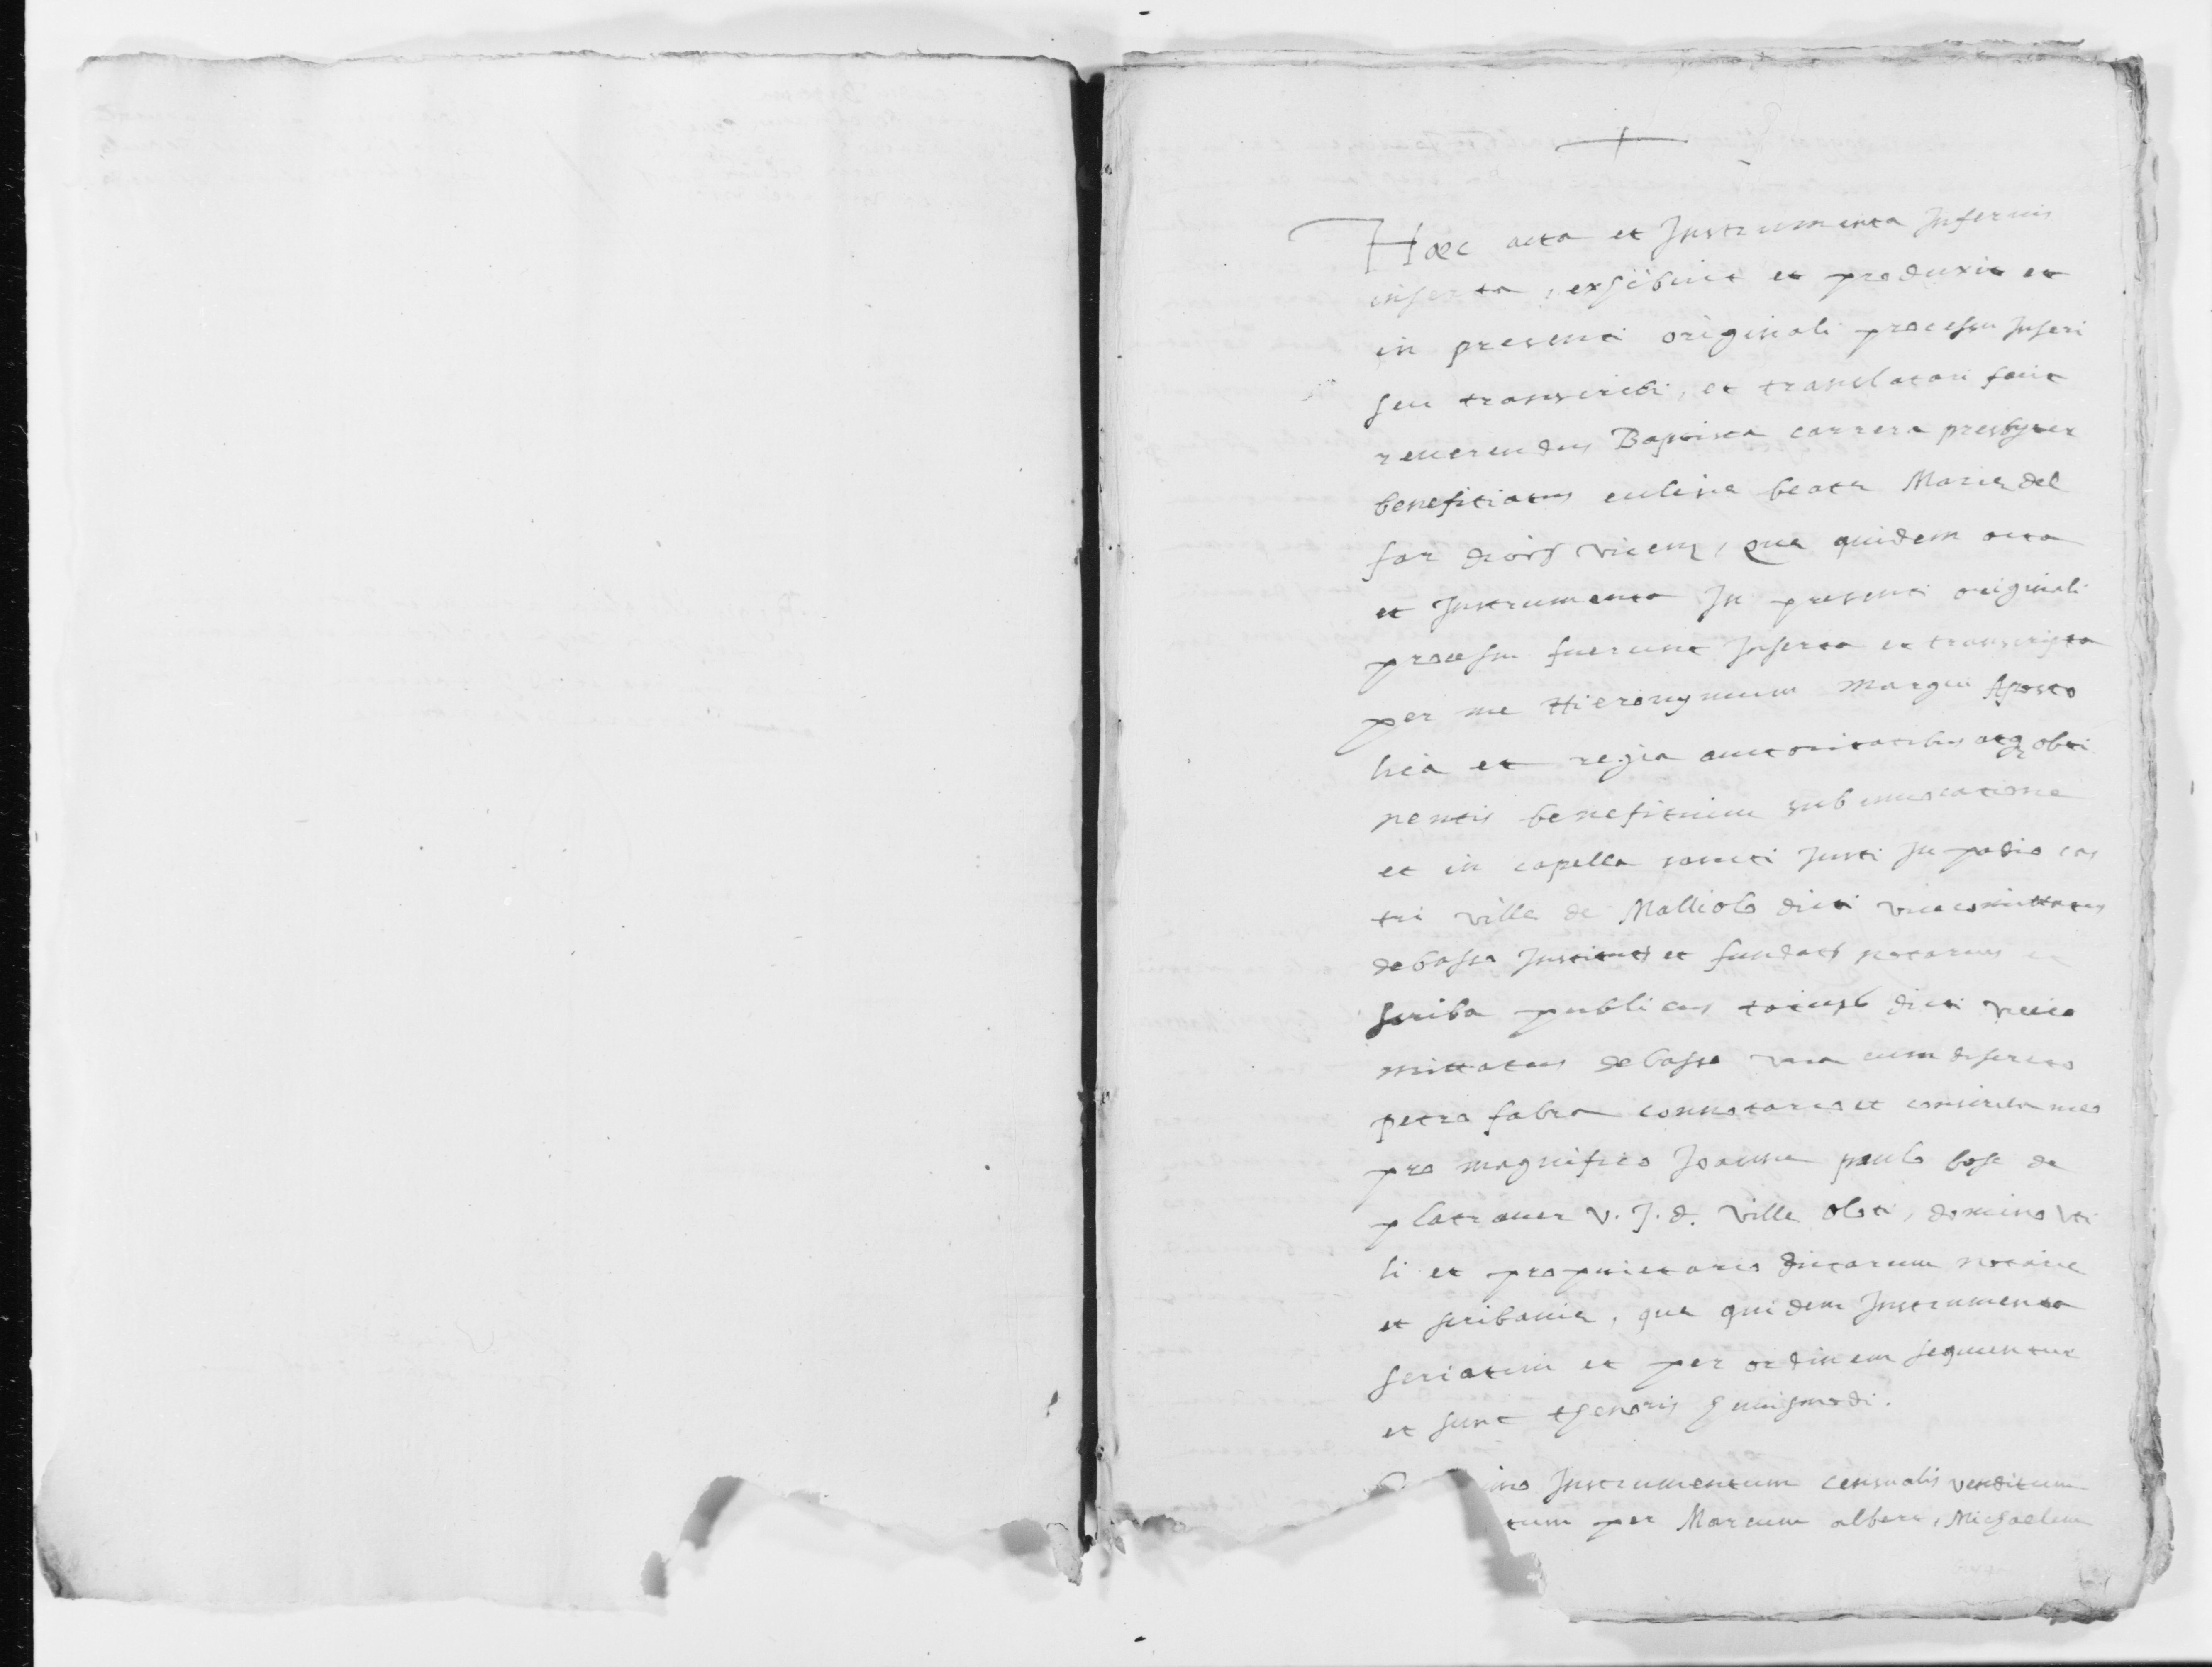 Hæc acta et Instrumenta Inferius
inserta, exhibuit et produxit et
in presenti originali processu Inseri
seu transcribi, et translatari fecit
reuerendus Baptista carrera presbyter
benefitiatus ecclesiæ beatæ Mariæ del
far diocs vicensis, quæ quidem acta
et Instrumenta In presenti originali
processu fuerunt Inserta et transcripta
per me Hieronymum Aposto
lica et regia auctoritatibus atq obti
nentis benefitium sub inuocatione
et in capella sancti Justi In podio cas
tri villæ de Malliolo dicti vicecomittatus
de bassa Instituti et fundati notarius et
scriba publicus totius dicti viceco
mittatus de bassa vna cum discreto
petro fabra connotario et conscriba meo
pro magnifico Joanne paulo bosc de
platrauer V. J. d. villæ oloti, domino vti
li et proprietario dictarum notariæ
et scribaniæ, quæ quidem Instrumenta
seriatim et per ordinem sequuntur
et sunt thenoris huiusmodi.
Instrumentum censualis venditum
per Marcum albere, Michaelem